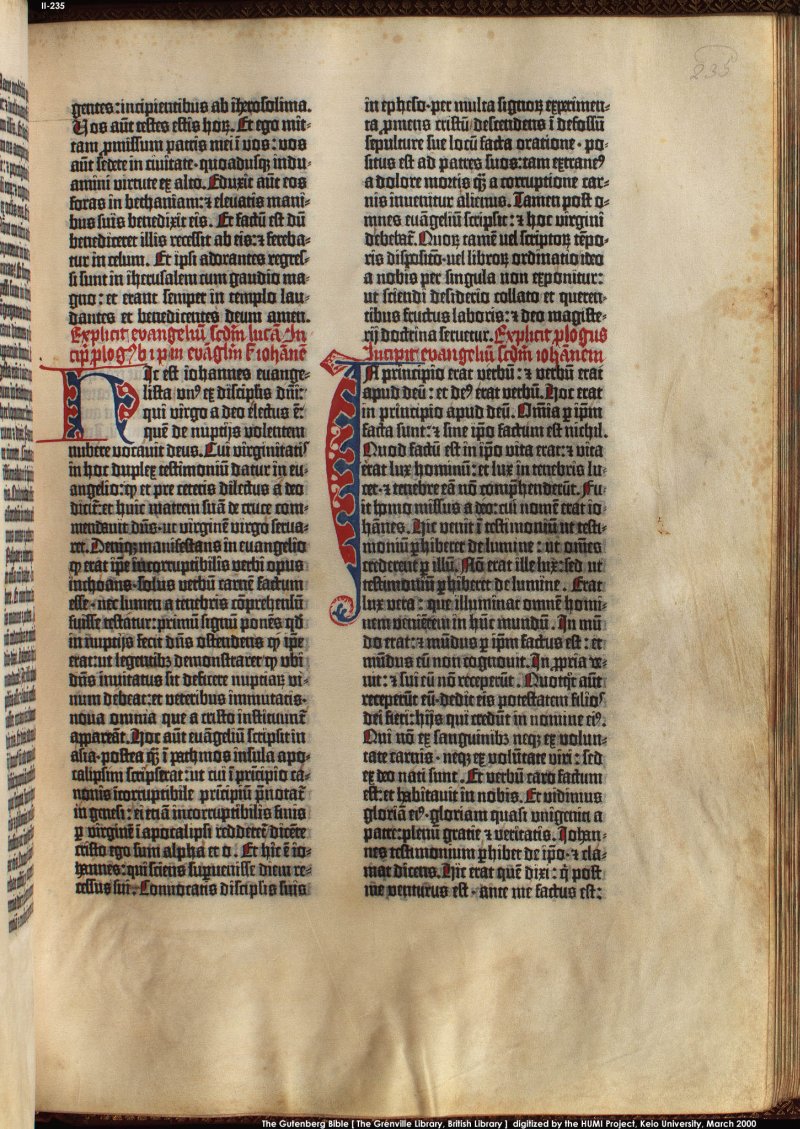 II-235
235
gentes: incipientibus ab iherosolima.
Vos aūt testes estis hoꝝ. Et ego mit-
tam ꝓmissum patris mei ī vos: vos
aūt sedete in civitate · quoadusqꝫ indu-
amini virtute ex alto. Eduxit aūt eos
foras in bethaniam: ⁊ elevatis mani-
bus suis benedixit eis. Et factū est dū
benediceret illis recessit ab eis: ⁊ fereba-
tur in celum. Et ipsi adorantes regres-
si sunt in iherusalem cum gaudio ma-
gno: et erant semper in templo lau-
dantes et benedicentes deum amen.
Explicit evangeliū scdm lucā In-
cip̄ ꝓlogꝰ b̄i iō̄nīm evāgliū s̄ iohānē
Hic est iohannes euange-
lista unꝰ ex discip̄lis dn̄i:
qui virgo a deo electus ē:
quē de nuptijs volentem
nubere vocavit deus. Cui virginitatis
in hoc duplex testimoniū datur in eu-
angelio: ꝙ et pre ceteris dilectus a deo
dicit̄: et huic matrem suā de cruce com-
mendavit dn̄s · ut virginē virgo serva-
ret. Deniqꝫ manifestans in euangelio
ꝙ erat ip̄e incorruptibilis verbi opus
inchoans · solus verbū carnē factum
esse · nec lumen a tenebris cōprehensū
fuisse testatur: primū signū ponēs qd̄
in nuptijs fecit dn̄s ostendens ꝙ ip̄e
erat: ut legentibꝫ demonstraret ꝙ ubi
dn̄s invitatus sit deficere nuptiaꝝ vi-
num debeat: et veteribus immutatis ·
nova omnia que a cristo instituunt̄
appareāt. Hoc aūt euāgeliū scripsit in
asia · postea qꝫ̄ ī pathmos insula apo-
calipsim scripserat: ut cui ī prīcipio ca-
nonis īcorruptibile prīcipiū p̄notat̄
in genesi: ei etiā incorruptibilis finis
ꝑ virginē ī apocalipsi redderet̄ dicēte
cristo ego sum alpha et o. Et hic ē io-
hannes: qui sciens suꝑvenisse diem re-
cessus sui. Convocatis discip̄lis suis
in epheso · per multa signoꝝ experimen-
ta ꝓmens cristū descendens ī defossū
sepulture sue locū facta oratione · po-
situs est ad patres suos: tam extraneꝰ
a dolore mortis qꝫ̄ a corruptione car-
nis invenitur alienus. Tamen post o-
mnes euāgeliū scripsit: ⁊ hoc virgini
debebat̄. Quoꝝ tamē vel scriptoꝝ tēpo-
ris dispositō · vel libroꝝ ordinatio ideo
a nobis per singula non exponitur:
ut sciendi desiderio collato et queren-
tibus fructus laboris: ⁊ deo magiste-
rij doctrina servetur. Explicit ꝓlogus
Incipit evangeliū scdm iohānem
In principio erat verbū: ⁊ verbū erat
apud deū: et deꝰ erat verbū. Hoc erat
in principio apud deū. Omīa ꝑ ip̄m
facta sunt: ⁊ sine ip̄o factum est nichil.
Quod factū est in ip̄o vita erat: ⁊ vita
erat lux hominū: et lux in tenebris lu-
cet · ⁊ tenebre eā nō comp̄henderūt. Fu-
it homo missus a deo: cui nomē erat io-
hānes. Hic venit ī testimoniū ut testi-
moniū ꝑhiberet de lumine: ut om̄es
crederent ꝑ illū. Nō erat ille lux: sed ut
testimoniū ꝑhiberet de lumine. Erat
lux vera: que illuminat omnē homi-
nem veniētem in hūc mundū. In mū-
do erat: ⁊ mūdus ꝑ ip̄m factus est: et
mūdus eū non cognovit. In ꝓpria ve-
nit: ⁊ sui eū nō receperūt. Quotqͫt aūt
receperūt eū · dedit eis potestatem filios
dei fieri: hijs qui credūt in nomine eiꝰ.
Qui nō ex sanguinibꝫ neqꝫ ex volun-
tate carnis · neqꝫ ex volūtate viri: sed
ex deo nati sunt. Et verbū caro factum
est: et habitavit in nobis. Et vidimus
gloriā eiꝰ · gloriam quasi unigeniti a
patre: plenū gratie ⁊ veritatis. Iohan-
nes testimonium ꝑhibet de ip̄o · ⁊ cla-
mat dicens. Hic erat quē dixi: q̄ post
me venturus est · ante me factus est:
The Gutenberg Bible [ The Grenville Library, British Library ] digitized by the HUMI Project, Keio University, March 2000